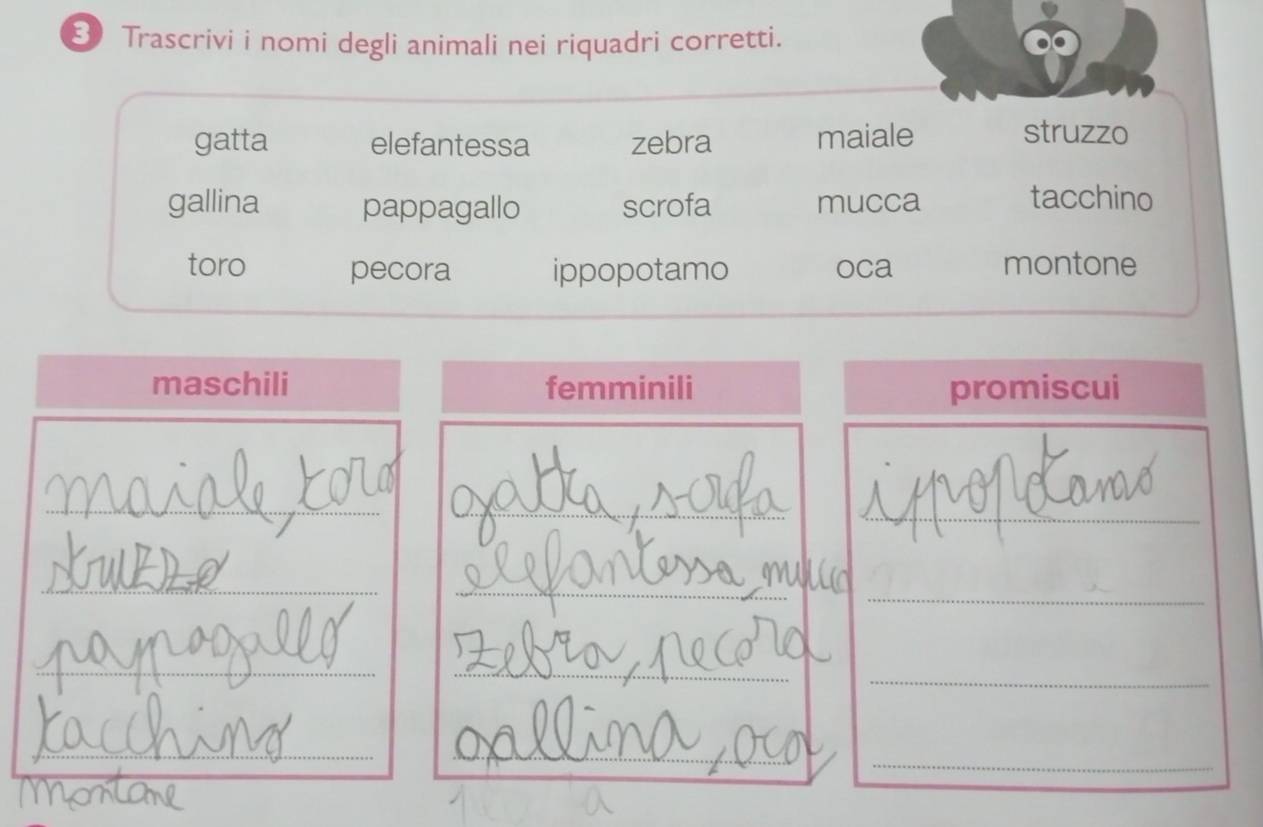 3 Trascrivi i nomi degli animali nei riquadri corretti.
gatta elefantessa zebra maiale struzzo
gallina pappagallo scrofa mucca tacchino
toro pecora ippopotamo oca montone
maschili
maiale, toro
struzzo
pappagallo
tacchino
montone
femminili
gatta, scrofa
elefantessa, mucca
zebra, pecora
gallina, oca
promiscui
ippopotamo